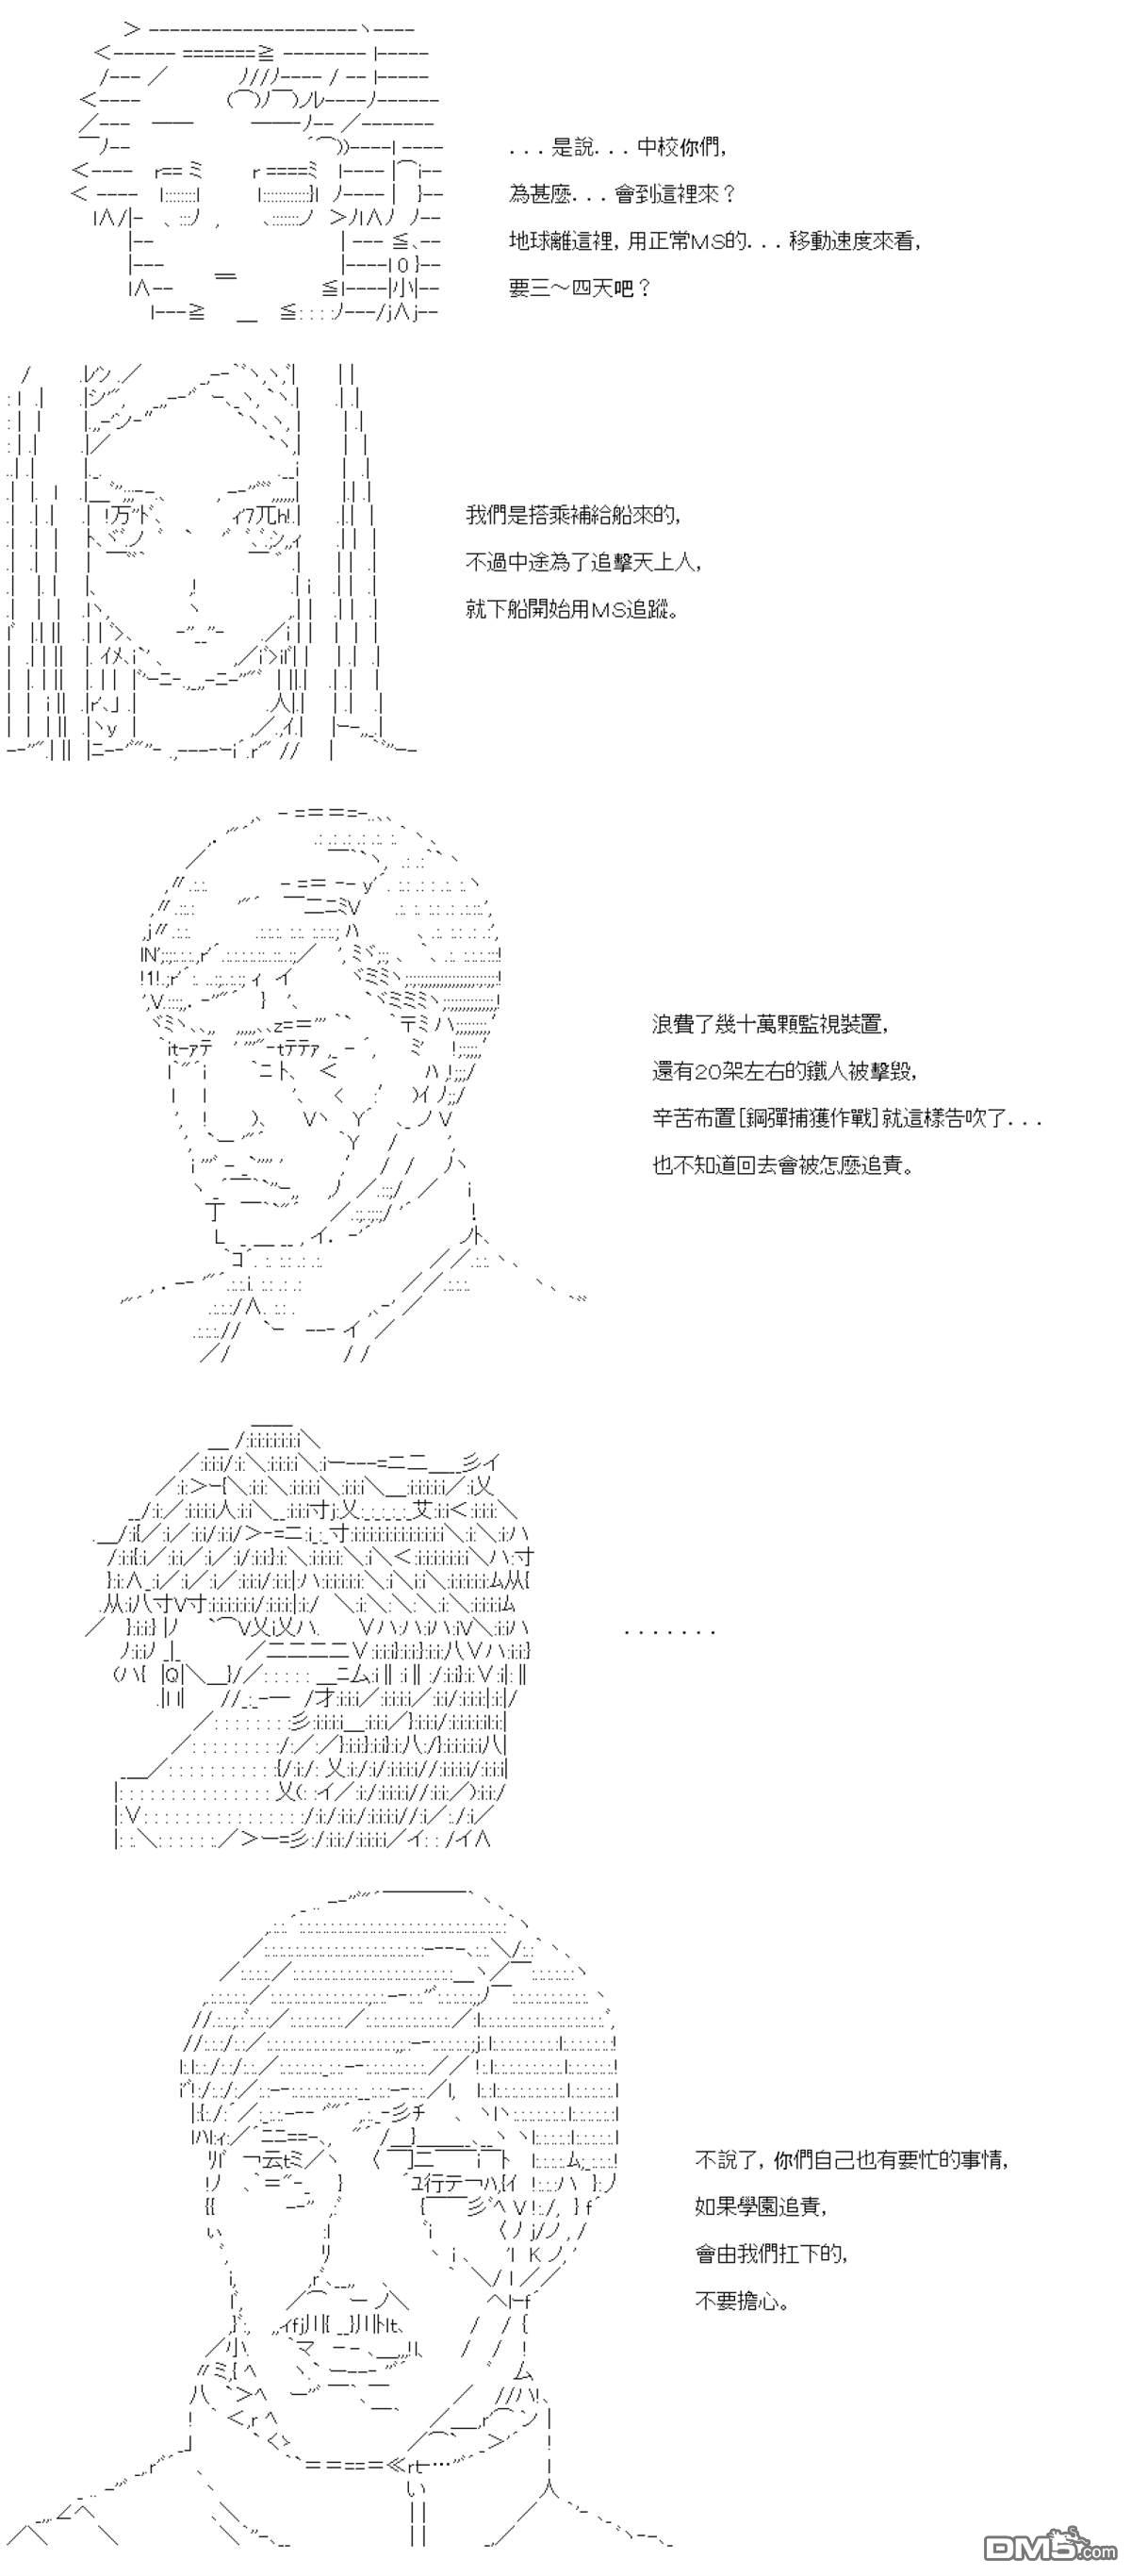 ...是說...中校你們,
為甚麼...會到這裡來？
地球離這裡,用正常MS的...移動速度來看,
要三～四天吧？
我們是搭乘補給船來的,
不過中途為了追擊天上人,
就下船開始用MS追蹤。
浪費了幾十萬顆監視裝置,
還有20架左右的鐵人被擊毀,
辛苦布置[鋼彈捕獲作戰]就這樣告吹了...
也不知道回去會被怎麼追責。
.......
不說了,你們自己也有要忙的事情,
如果學園追責,
會由我們扛下的,
不要擔心。
DM5.com